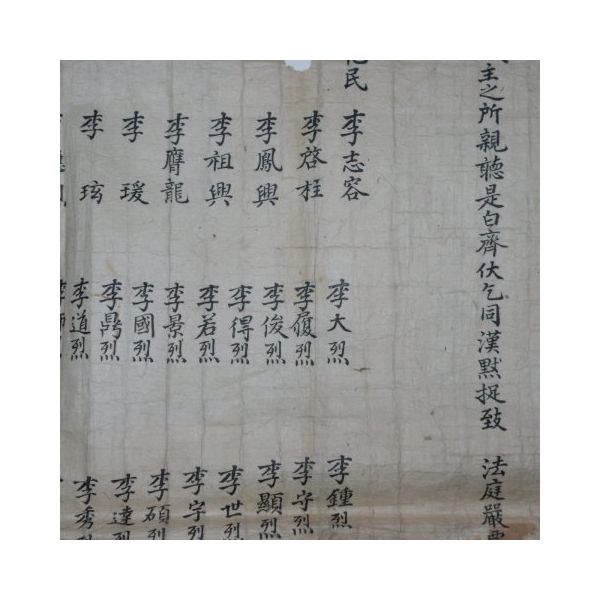 主之所親聽是白齊伏乞同漢默捉致 法庭嚴
民 李志容 李大烈 李鍾烈
李啓柱 李履烈 李守烈
李鳳興 李俊烈 李顯烈
李祖興 李得烈 李世烈
李膺龍 李若烈 李字烈
李瑗 李景烈 李碩烈
李玹 李國烈 李達烈
李 烈 李秀烈
李道烈